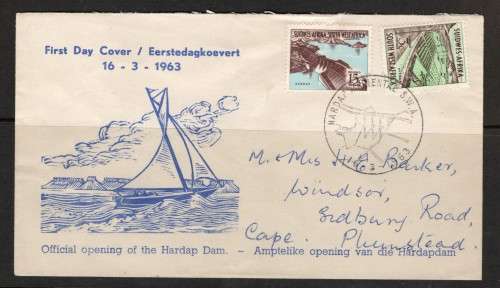 First Day Cover / Eerstedagkoevert
16 - 3 - 1963
SUIDWES-AFRIKA. SOUTH WEST AFRICA
15c
HARDAP
SUIDWES-AFRIKA
SOUTH WEST AFRICA
3c
HARDAP S.W.A.
1963
M. & Mrs Barker,
Windsor,
Sedbury Road,
Cape. Plumstead.
Official opening of the Hardap Dam. - Amptelike opening van die Hardapdam